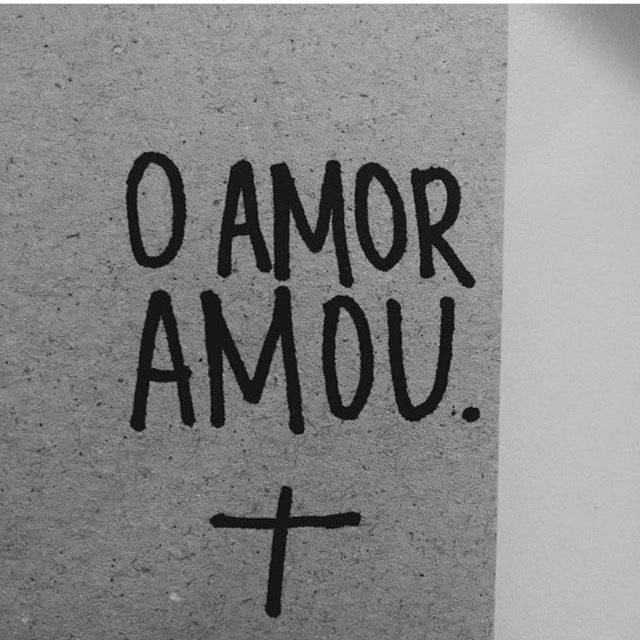 O AMOR
AMOU.